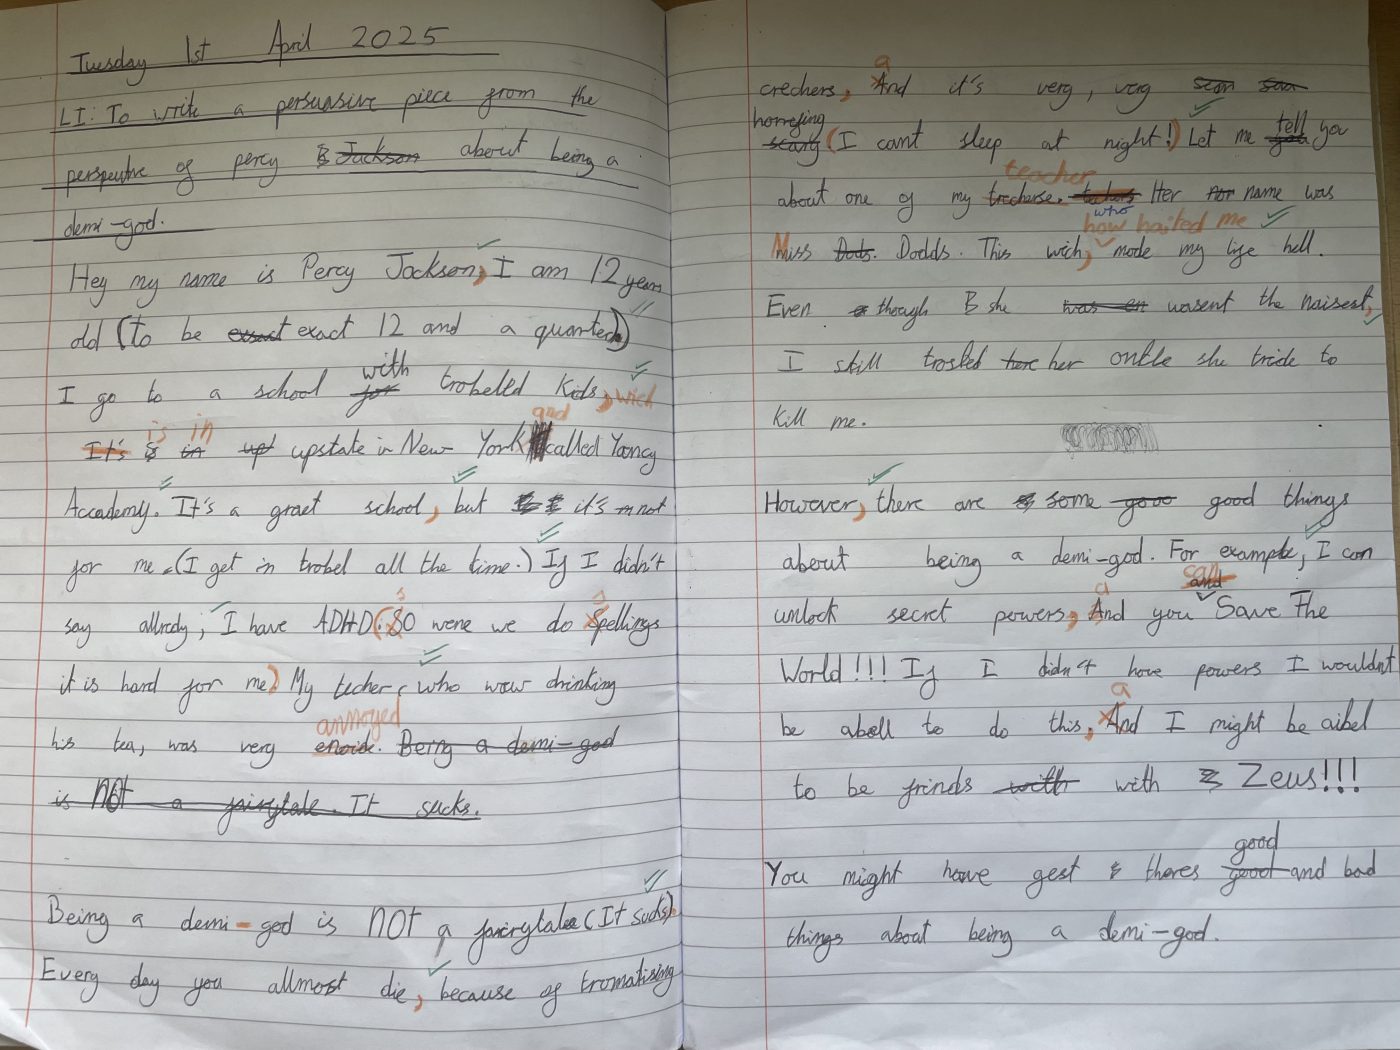 Tuesday 1st April 2025
LI: To write a persuasive piece from the
perspective of percy Jackson about being a
demi-god.
Hey my name is Percy Jackson, I am 12 years
old (to be exact 12 and a quarter)
with
I go to a school for trobelld Kids, wich
is in and
It's in upt upstate in New York called Yancy
Accademy. It's a graet school, but it's not
for me. (I get in trobel all the time.) If I didn't
s s
say allredy, I have ADHD. (SO wene we do Spellings
it is hard for me) My techer, who wow drinking
annoyed
his tea, was very enoid. Being a demi-god
is NOt a fairytale. It sucks.
Being a demi-god is NOt a fairytale (It sucks).
Every day you allmost die, because of tromatising
a
crechers, And it's very, very
horrefing
scary (I cant sleep at night!) Let me tell you
teacher
about one of my trecherse. techers Her name was
who
how haited me
Miss Dods. Dodds. This wich, mode my life hell.
Even though B she was en wasent the naisest,
I still trosted her onkle she tride to
kill me.
However, there are some gooo good things
about being a demi-god. For example, I can
a can
and
unlock secret powers, And you Save The
World!!! If I didn't have powers I wouldn't
a
be aboll to do this, And I might be aibel
to be frinds with with Zeus!!!
good
You might have gest theres good and bad
things about being a demi-god.